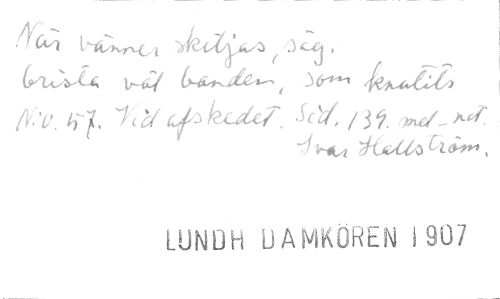 När vänner skiljas, säg.
brista väl banden, som knutits
N:o. 57. Vid afskedet. Sid. 139. mel-not.
Ivar Hallström.
LUNDH DAMKÖREN 1907